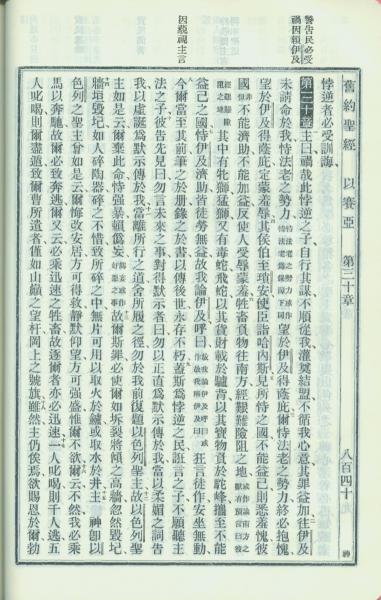 警告民必受
禍因賴伊及
因藐視主言
舊約聖經 以賽亞 第三十章 八百四十
悖逆者必受訓誨
第三十章 主曰禍哉此悖逆之子自行其謀不順從我灌奠結盟不循我心意其罪益加往伊及
未請命於我恃法老之勢力 望於伊及得蔭庇爾恃法老之勢力終必抱愧
望於伊及得蔭庇定蒙羞辱其侯伯至瑣安使臣詣哈內斯見所恃之國不能益己則悉羞愧彼
國非惟不能濟助不能加益反使人受辱蒙羞牲畜負物往南方經艱難險阻之地
其中有牝獅猛獅又有毒蛇飛蛇以其貨財載於驢背以其寶物負於駝峰攜至不能
益己之國恃伊及濟助皆徒勞無益故我論伊及呼曰 狂言徒作安坐無動
今爾當至其前筆之於冊錄之於書以傳後世永存不朽蓋斯爲悖逆之民誑言之子不願聽主
法之子彼告先見曰勿言未來之事對得默示者曰勿以正直爲默示傳於我當以柔媚之詞告
我以虛誕爲默示傳於我當離所行之道舍所履之徑勿於我前復題以色列聖主故以色列聖
主如是云爾棄此命恃強暴頓僞妄 故爾斯罪必使爾如坼裂將傾之高牆忽然毀圮
牆垣毀圮如人碎陶器碎之不惜致所碎之中無片可用以取火於鑪或取水於井主神卽以
色列之聖主曾如是云爾悔改安居方可得救靜默仰望方可強盛惟爾不欲爾云不然我必乘
馬以奔馳故爾必致奔逃爾又云必乘迅速之牲畜故逐爾者亦必迅速一人叱喝則千人逃五
人叱喝則爾盡遁致爾曹所遺者僅如山巔之望杆岡上之號旗雖然主仍俟焉欲賜恩於爾勃